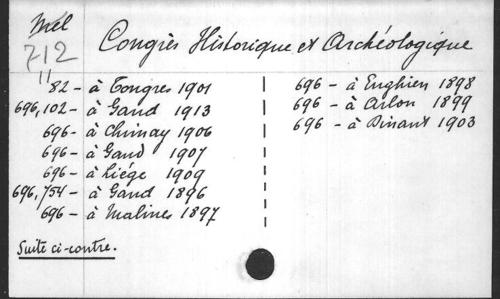 Mél
712
11
Congrès Historique et Archéologique
82 - à Tongres 1901
696, 102 - à Gand 1913
696 - à Chimay 1906
696 - à Gand 1907
696 - à Liége 1909
696, 754 - à Gand 1896
696 - à Malines 1897
Suite ci-contre.
696 - à Enghien 1898
696 - à Arlon 1899
696 - à Dinant 1903